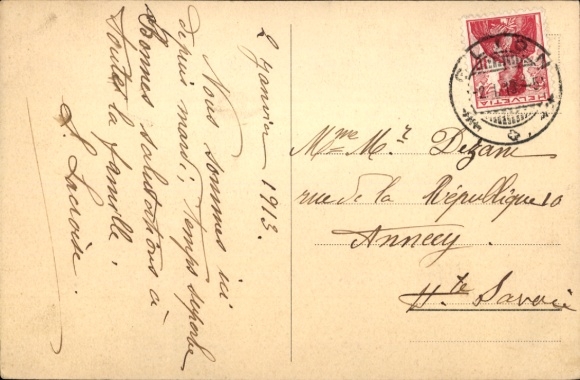 2 Janvier 1913.
Nous sommes ici
depuis mardi; temps superbe
Bonnes salutations à
toutes la famille.
L Lacroix.
HELVETIA
Mme M.r Dezan
rue de la République 10
Annecy.
Hte Savoie